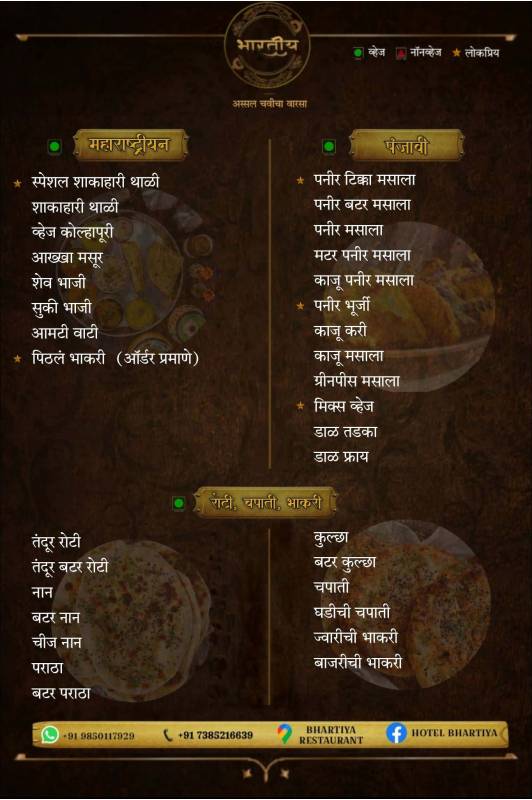 भारतीय
अस्सल चवीचा वारसा
व्हेज
नॉनव्हेज
लोकप्रिय
महाराष्ट्रीयन
स्पेशल शाकाहारी थाळी
शाकाहारी थाळी
व्हेज कोल्हापूरी
आख्खा मसूर
शेव भाजी
सुकी भाजी
आमटी वाटी
पिठलं भाकरी (ऑर्डर प्रमाणे)
पंजाबी
पनीर टिक्का मसाला
पनीर बटर मसाला
पनीर मसाला
मटर पनीर मसाला
काजू पनीर मसाला
पनीर भूर्जी
काजू करी
काजू मसाला
ग्रीनपीस मसाला
मिक्स व्हेज
डाळ तडका
डाळ फ्राय
रोटी, चपाती, भाकरी
तंदूर रोटी
तंदूर बटर रोटी
नान
बटर नान
चीज नान
पराठा
बटर पराठा
कुल्छा
बटर कुल्छा
चपाती
घडीची चपाती
ज्वारीची भाकरी
बाजरीची भाकरी
+91 9850117929
+91 7385216639
BHARTIYA
RESTAURANT
HOTEL BHARTIYA